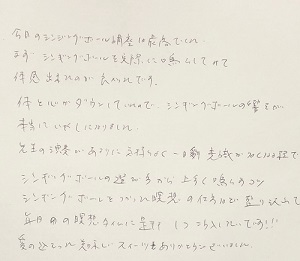 今日のシンギングボール講座は最高でした
まず シンギングボールを実際に鳴らしてみて
体感出来たのが良かったです。
体と心がダウンしていたので、シンギングボールの響きが
本当にいやしになりました
先生の演奏があまりに気持ちよく 一瞬 意識が
シンギングボールの選び方から上手く鳴らすコツ
シンギングボールをつかった瞑想の仕方など盛り沢山で
毎日の瞑想タイムに是非 とり入れたいです!!
愛の込もった美味しいスイーツもありがとうございました。